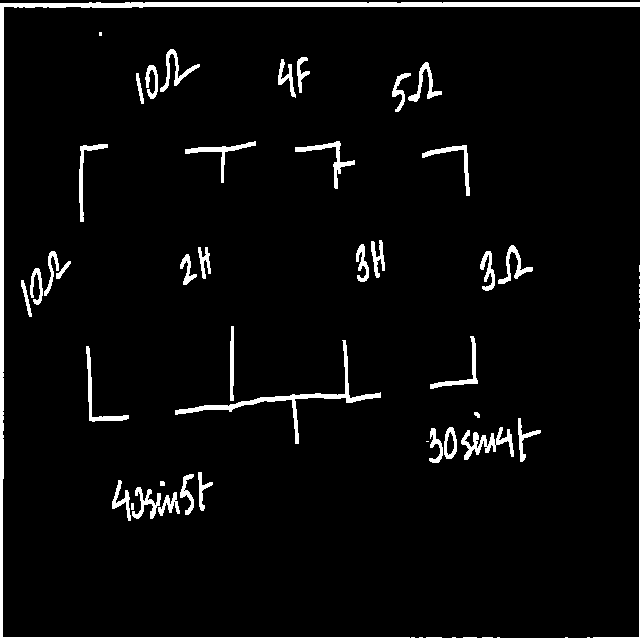 10Ω 4F 5Ω
10Ω 2H 3H 3Ω
30sin4t
40sin5t